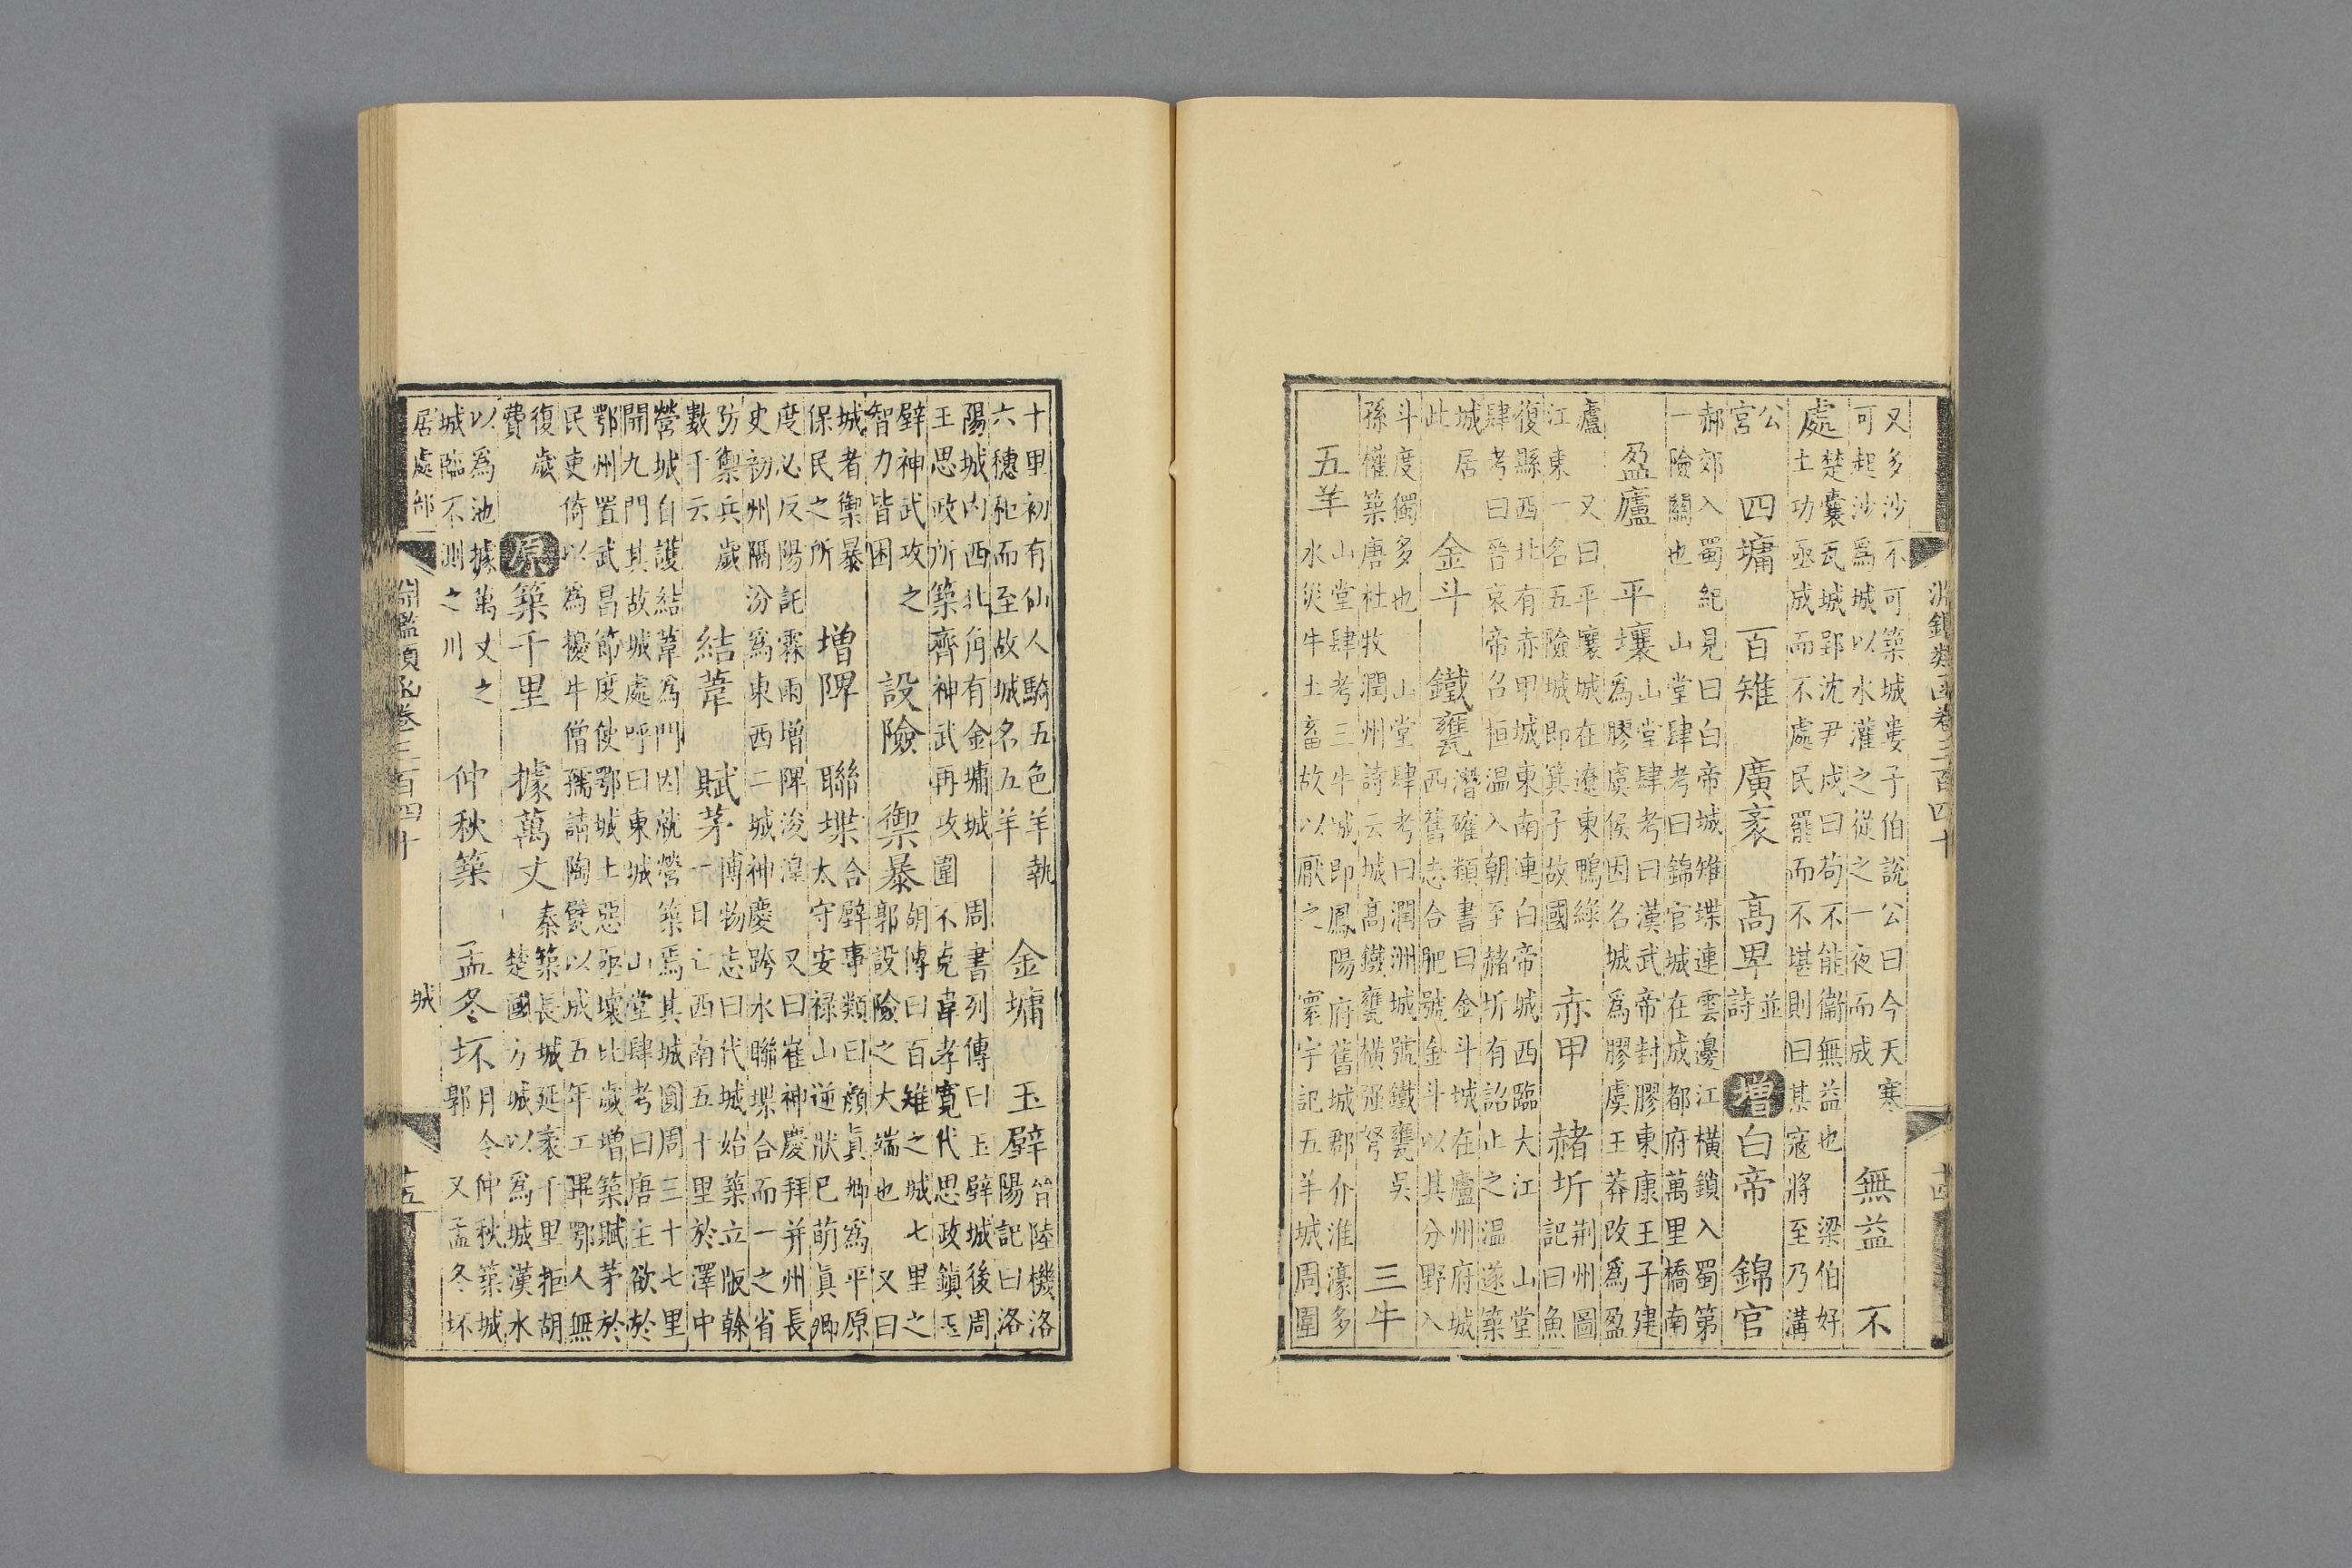 淵鑑類函卷三百四十 十四
又多沙不可築城婁子伯說公曰今天寒
可起沙爲城以水灌之從之一夜而成
無益 不
處
楚囊瓦城郢沈尹戌曰苟不能衞無益也 梁伯好
土功亟成而不處民罷而不堪則曰某寇將至乃溝
公
宮
四墉 百雉 廣袤 高卑
並
詩
增 白帝 錦官
郝郊入蜀紀見曰白帝城雉堞連雲邊江橫鎖入蜀第
一險關也 山堂肆考曰錦官城在成都府萬里橋南
盈廬 平壤
山堂肆考曰漢武帝封膠東康王子建
爲膠虞侯因名城爲膠虞王莽改爲盈
廬 又曰平壤城在遼東鴨綠
江東一名五險城即箕子故國
赤甲 赭圻
荆州圖
記曰魚
復縣西北有赤甲城東南連白帝城西臨大江 山堂
肆考曰晉哀帝召桓温入朝至赭圻有詔止之温遂築
城居
此
金斗 鐵甕
潛確類書曰金斗城在廬州府城
西舊志合肥號金斗以其分野入
斗度獨多也 山堂肆考曰潤洲城號鐵甕吳
孫權築唐杜牧潤州詩云城高鐵甕橫强弩
三牛
五羊
山堂肆考三牛城即鳳陽府舊城郡介淮濠多
水災牛土畜故以厭之 寰宇記五羊城周圍
十里初有仙人騎五色羊執
六穗秬而至故城名五羊
金墉 玉壁
晉陸機洛
陽記曰洛
陽城内西北角有金墉城 周書列傳曰玉壁城後周
王思政所築齊神武再攻圍不克韋孝寬代思政鎭玉
壁神武攻之
智力皆困
設險 禦暴
胡傳曰百雉之城七里之
郭設險之大端也 又曰
城者禦暴
保民之所
增陴 聯堞
合璧事類曰顔眞卿爲平原
太守安禄山逆狀巳萌眞卿
度必反陽託霖雨增陴浚湟 又曰崔神慶拜并州長
史初州隔汾爲東西二城神慶跨水聯堞合而一之省
防禦兵歲
數千云
結葦 賦茅
博物志曰代城始築立版幹
一日亡西南五十里於澤中
營城自護結葦爲門因就營築焉其城圓周三十七里
開九門其故城處呼曰東城 山堂肆考曰唐主欲於
鄂州置武昌節度使鄂城土惡亟壞比歲增築賦茅於
民吏倚以爲擾牛僧孺請陶甓以成五年工畢鄂人無
復歲
費
原 築千里 據萬丈
秦築長城延袤千里拒胡
楚國方城以爲城漢水
以爲池據萬丈之
城臨不測之川
仲秋築 孟冬坏
月令仲秋築城
郭 又孟冬坏
居處部 淵鑑類函卷三百四十 城 十五